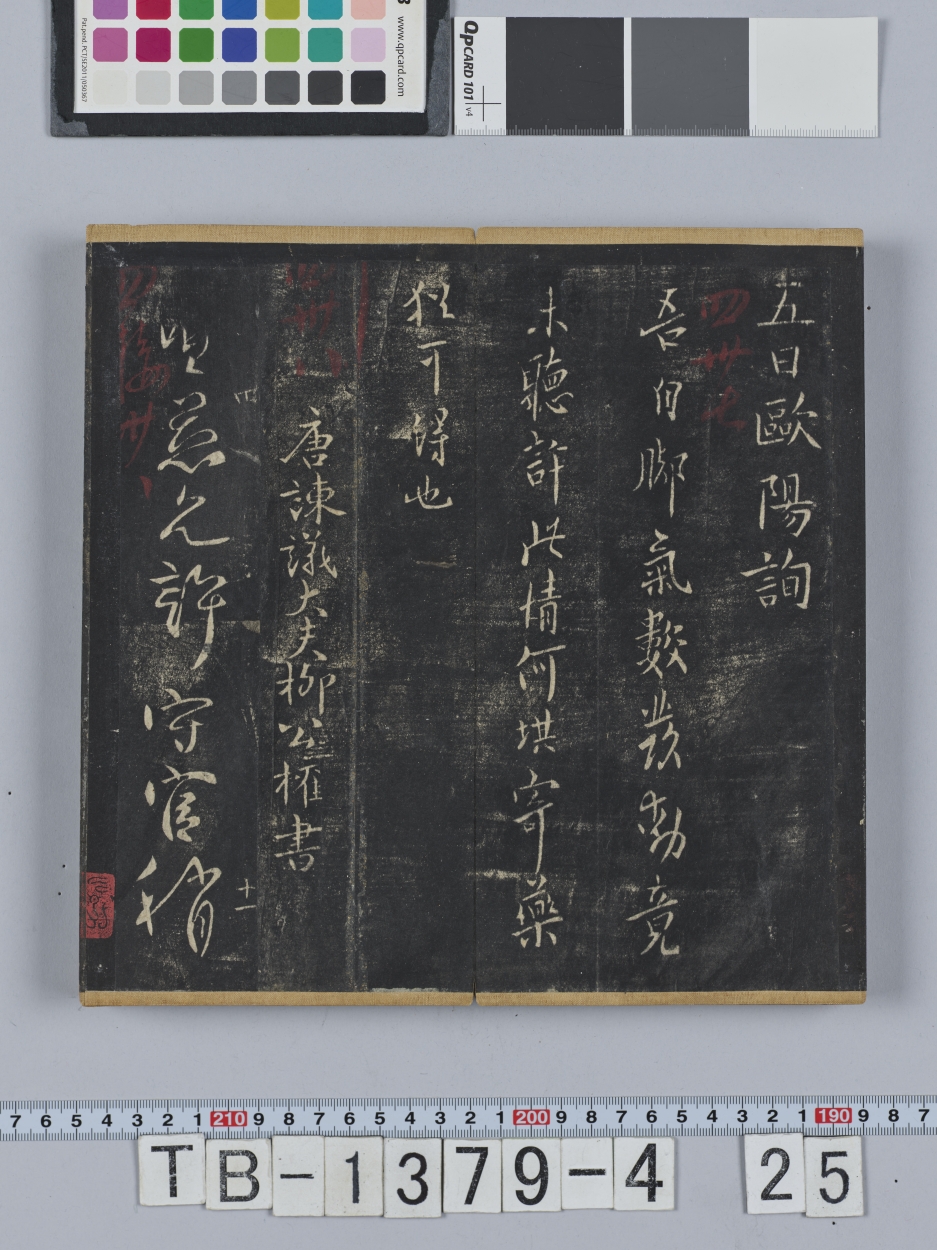 www.qpcard.com
Pat.pend. PCT/SE2011/050367
QPCARD 101 v4
五日歐陽詢
四 卅七
吾自腳氣數發動竟
未聽許此情何堪寄藥
猶可得也
唐諫議大夫柳公權書
四
十一
恩允許守官稍
7 6 5 4 3 2 1 210 9 8 7 6 5 4 3 2 1 200 9 8 7 6 5 4 3 2 1 190 9 8 7
TB-1379-4 25